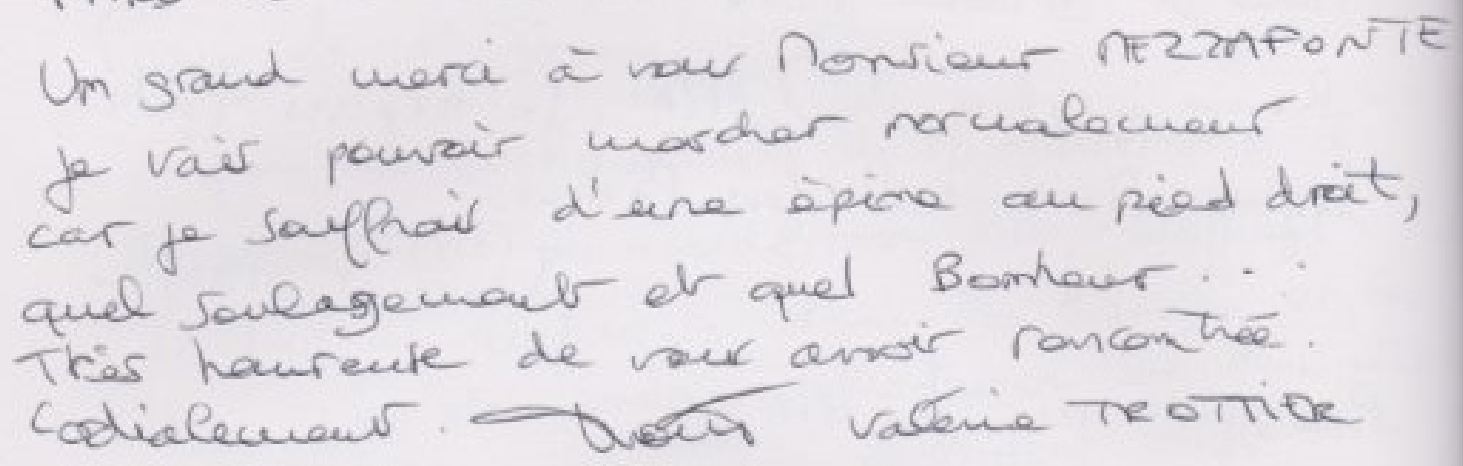 Un grand merci à vous Monsieur MEZZAFONTE
je vais pouvoir marcher normalement
car je souffrais d'une épine au pied droit,
quel soulagement et quel Bonheur...
Très heureuse de vous avoir rencontrée.
Cordialement. Valérie TROTTIER